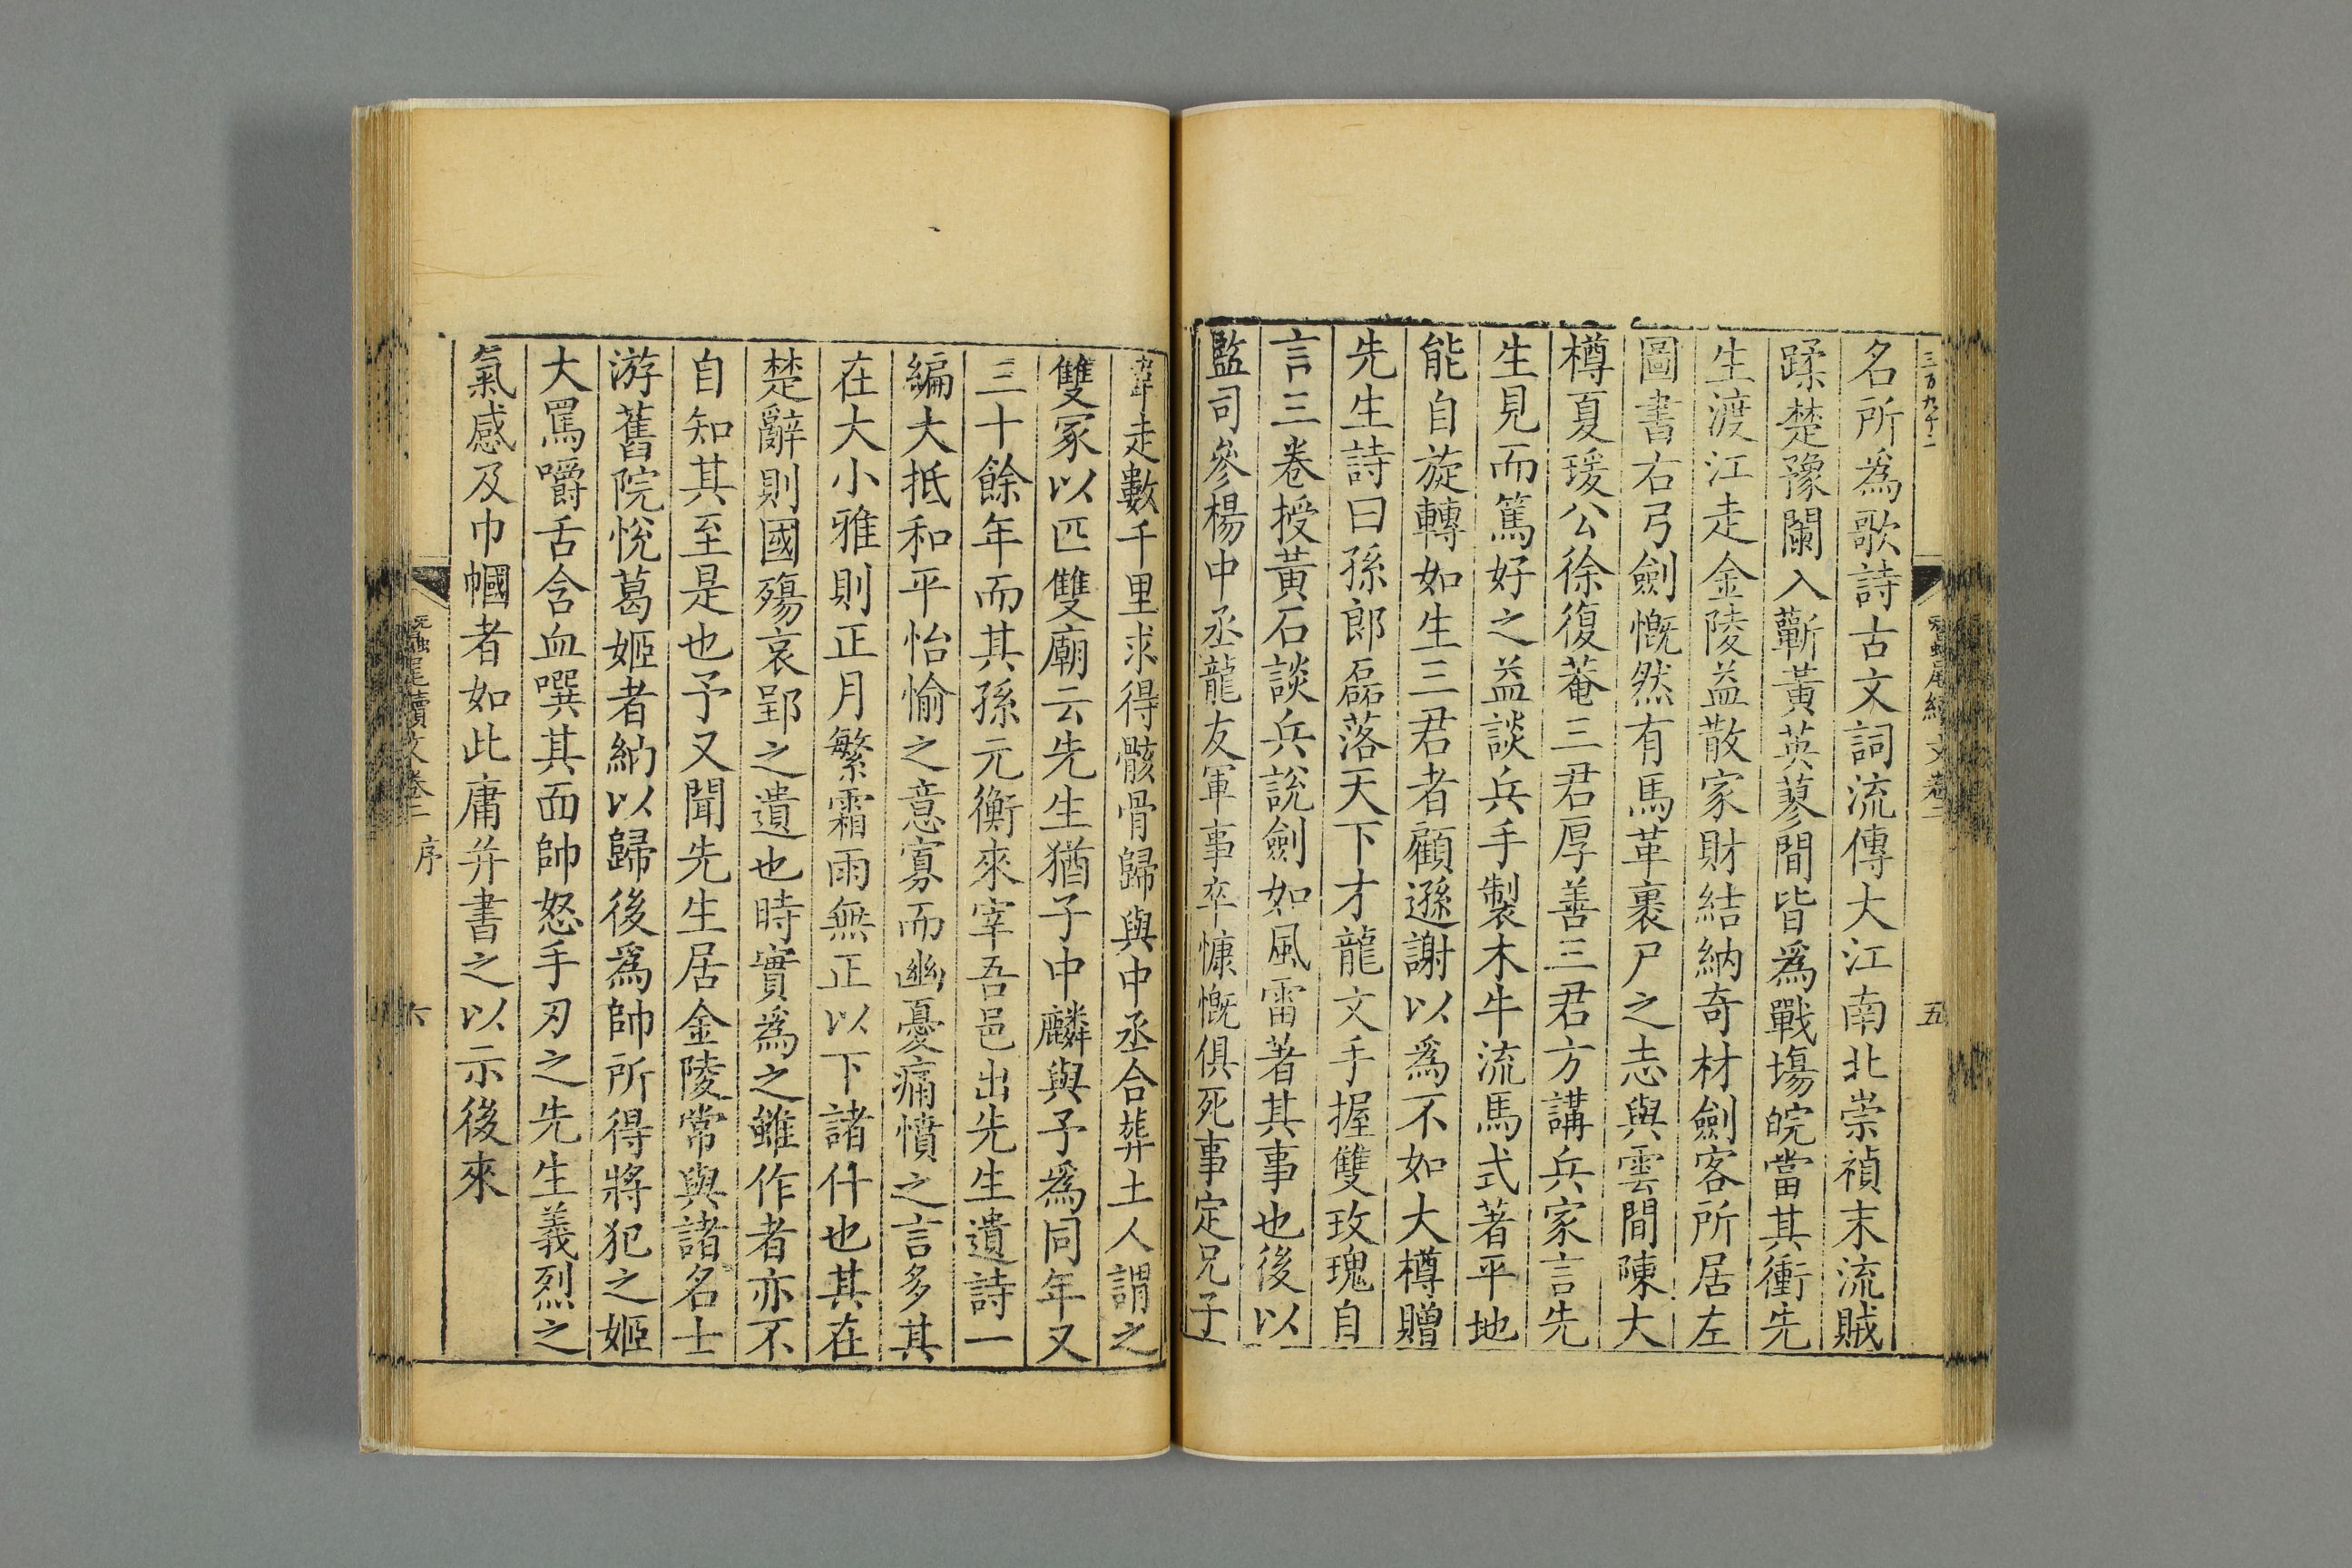 名所爲歌詩古文詞流傳大江南北崇禎末流賊
蹂楚豫闌入蘄黃英蓼間皆爲戰塲皖當其衝先
生渡江走金陵益散家財結納奇材劍客所居左
圖書右弓劍慨然有馬革裹尸之志與雲間陳大
樽夏瑗公徐復菴三君厚善三君方講兵家言先
生見而篤好之益談兵手製木牛流馬式著平地
能自旋轉如生三君者顧遜謝以爲不如大樽贈
先生詩曰孫郎磊落天下才龍文手握雙玫瑰自
言三卷授黃石談兵說劍如風雷著其事也後以
監司參楊中丞龍友軍事卒慷慨俱死事定兄子
走數千里求得骸骨歸與中丞合葬土人謂之
雙冢以匹雙廟云先生猶子中麟與予爲同年又
三十餘年而其孫元衡來宰吾邑出先生遺詩一
編大抵和平怡愉之意寡而幽憂痛憤之言多其
在大小雅則正月繁霜雨無正以下諸什也其在
楚辭則國殤哀郢之遺也時實爲之雖作者亦不
自知其至是也予又聞先生居金陵常與諸名士
游舊院悅葛姬者納以歸後爲帥所得將犯之姬
大罵嚼舌含血噀其面帥怒手刃之先生義烈之
氣感及巾幗者如此庸并書之以示後來
蠶尾續文卷二
五
蠶尾續文卷二 序
六